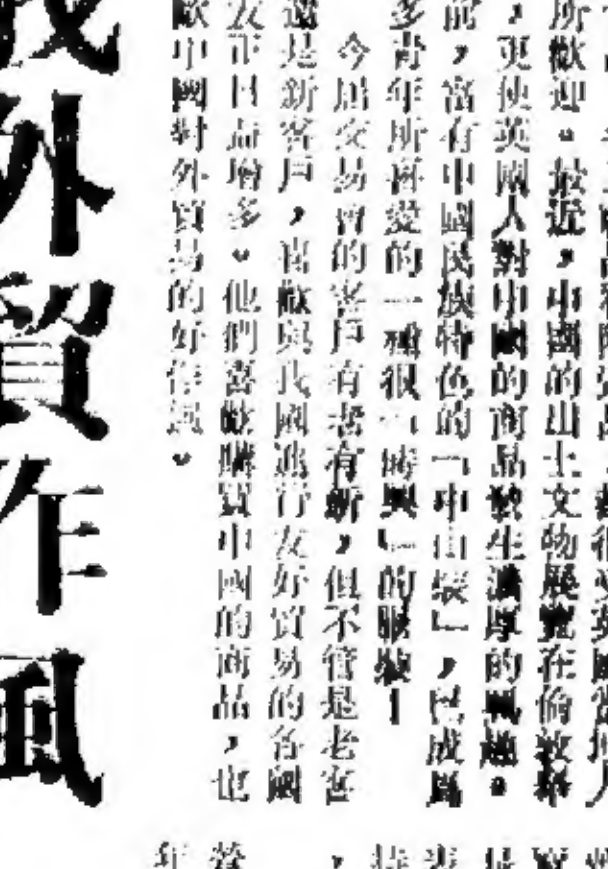 所歡迎。最近，中國的出土文物展覽在倫敦舉
，更使英國人對中國的商品發生濃厚的興趣。
前，富有中國民族特色的「中山裝」，已成爲
多青年所喜愛的一種很「時興」的服裝！
今屆交易會的客戶有老有新，但不管是老客
還是新客戶，喜歡與我國進行友好貿易的各國
友正日益增多。他們喜歡購買中國的商品，也
歡中國對外貿易的好作風。
我外貿作風